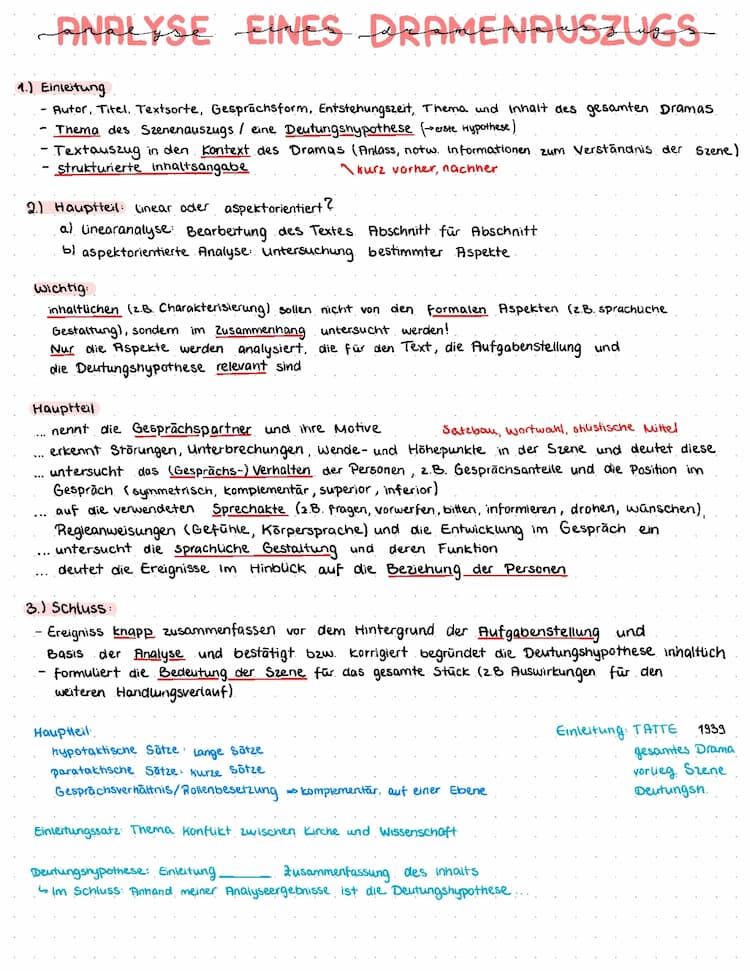 ANALYSE EINES DRAMENAUSZUGS
analyse eines dramenauszugs
1.) Einleitung
- Autor, Titel, Textsorte, Gesprächsform, Entstehungszeit, Thema und Inhalt des gesamten Dramas
- Thema des Szenenauszugs / eine Deutungshypothese (→ erste Hypothese)
- Textauszug in den Kontext des Dramas (Anlass, notw. Informationen zum Verständnis der Szene)
- strukturierte Inhaltsangabe
\ kurz vorher, nachher
2.) Hauptteil: linear oder aspektorientiert?
a) Linearanalyse: Bearbeitung des Textes Abschnitt für Abschnitt
b) aspektorientierte Analyse: Untersuchung bestimmter Aspekte
Wichtig:
inhaltlichen (z.B. Charakterisierung) sollen nicht von den formalen Aspekten (z.B. sprachliche
Gestaltung), sondern im Zusammenhang untersucht werden!
Nur die Aspekte werden analysiert, die für den Text, die Aufgabenstellung und
die Deutungshypothese relevant sind
Hauptteil
... nennt die Gesprächspartner und ihre Motive
Satzbau, Wortwahl, stilistische Mittel
... erkennt Störungen, Unterbrechungen, Wende- und Höhepunkte in der Szene und deutet diese
... untersucht das (Gesprächs-) Verhalten der Personen, z.B. Gesprächsanteile und die Position im
Gespräch (symmetrisch, komplementär, superior, inferior)
... auf die verwendeten Sprechakte (z.B. fragen, vorwerfen, bitten, informieren, drohen, wünschen),
Regieanweisungen (Gefühle, Körpersprache) und die Entwicklung im Gespräch ein
... untersucht die sprachliche Gestaltung und deren Funktion
... deutet die Ereignisse im Hinblick auf die Beziehung der Personen
3.) Schluss:
- Ereigniss knapp zusammenfassen vor dem Hintergrund der Aufgabenstellung und
Basis der Analyse und bestätigt bzw. korrigiert begründet die Deutungshypothese inhaltlich
- formuliert die Bedeutung der Szene für das gesamte Stück (z.B Auswirkungen für den
weiteren Handlungsverlauf)
Hauptteil:
hypotaktische Sätze: lange Sätze
parataktische Sätze: kurze Sätze
Gesprächsverhältnis/Rollenbesetzung ⇒ komplementär, auf einer Ebene
Einleitung: TATTE 1939
gesamtes Drama
vorlieg. Szene
Deutungsh.
Einleitungssatz: Thema Konflikt zwischen Kirche und Wissenschaft
Deutungshypothese: Einleitung______ Zusammenfassung des Inhalts
↳ Im Schluss: Anhand meiner Analyseergebnisse ist die Deutungshypothese...